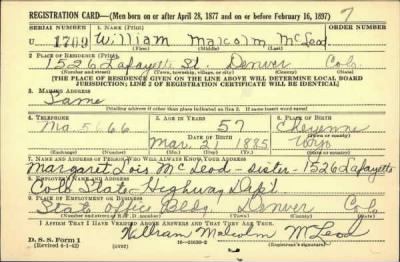 REGISTRATION CARD—(Men born on or after April 28, 1877 and on or before February 16, 1897) 7
SERIAL NUMBER 1. NAME (Print) ORDER NUMBER
U 1709 William Malcolm McLeod
(First) (Middle) (Last)
2. PLACE OF RESIDENCE (Print)
1526 Lafayette St. Denver Colo.
(Number and street) (Town, township, village, or city) (County) (State)
[THE PLACE OF RESIDENCE GIVEN ON THE LINE ABOVE WILL DETERMINE LOCAL BOARD
JURISDICTION; LINE 2 OF REGISTRATION CERTIFICATE WILL BE IDENTICAL]
3. MAILING ADDRESS
Same
[Mailing address if other than place indicated on line 2. If same insert word same]
4. TELEPHONE 5. AGE IN YEARS 6. PLACE OF BIRTH
Ma. 5666 57 Cheyenne
DATE OF BIRTH (Town or county)
Mar. 21 1885 Wyo
(Exchange) (Number) (Mo.) (Day) (Yr.) (State or country)
7. NAME AND ADDRESS OF PERSON WHO WILL ALWAYS KNOW YOUR ADDRESS
Margaret Lois McLeod - sister - 1526 Lafayette
8. EMPLOYER'S NAME AND ADDRESS
Colo State Highway Dept
9. PLACE OF EMPLOYMENT OR BUSINESS
State Office Bldg. Denver Colo.
(Number and street or R. F. D. number) (Town) (County) (State)
I AFFIRM THAT I HAVE VERIFIED ABOVE ANSWERS AND THAT THEY ARE TRUE.
William Malcolm McLeod
D. S. S. Form 1
(Revised 4-1-42) (over) 16—21630-2 (Registrant's signature)